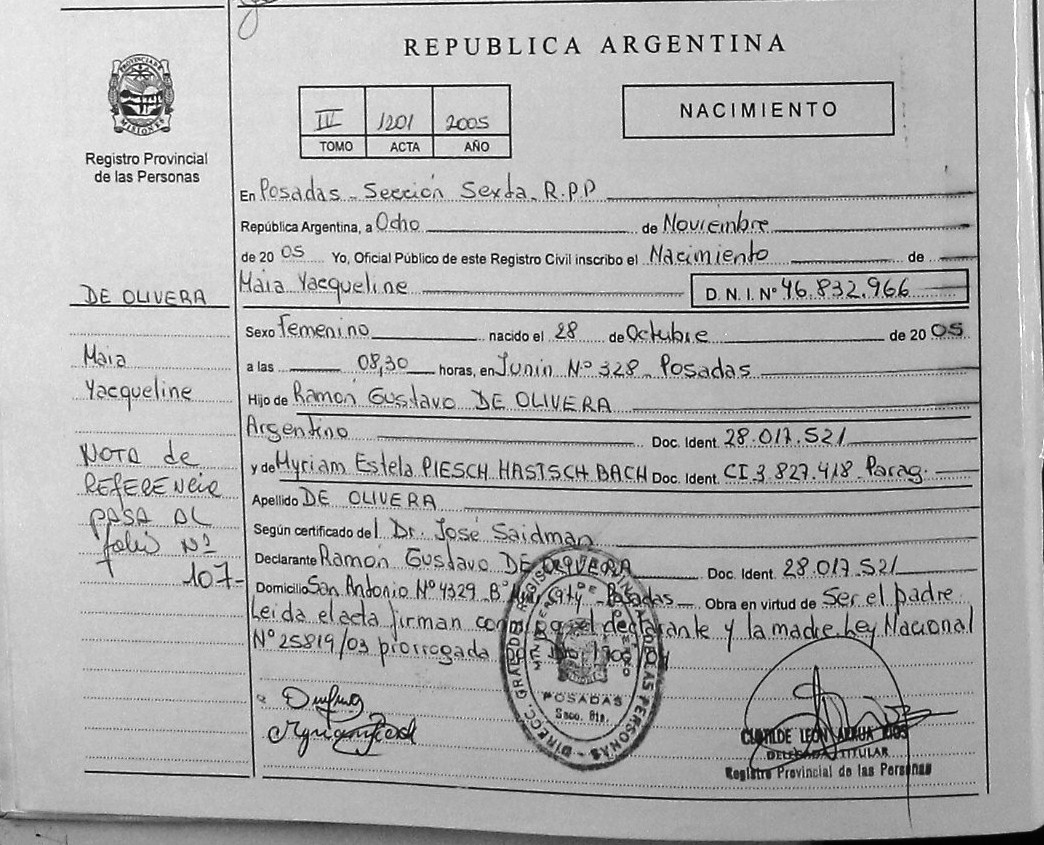 REPUBLICA ARGENTINA
PROVINCIA DE
MISIONES
Registro Provincial
de las Personas
III 1201 2005
TOMO ACTA AÑO
NACIMIENTO
En Posadas - Sección Sexta. R.P.P
República Argentina, a Ocho de Noviembre
de 20 05 Yo, Oficial Público de este Registro Civil inscribo el Nacimiento de
Maia Yacqueline D. N. I. Nº 46.832.966
DE OLIVERA
Sexo Femenino nacido el 28 de Octubre de 20 05
Maia
a las 08,30 horas, en Junin Nº 328 - Posadas
Yacqueline
Hijo de Ramón Gustavo DE OLIVERA
Argentino Doc. Ident. 28.017.521
NOTA de
y de Myriam Estela PIESCH HASTSCH BACH Doc. Ident. CI 3.827.418. Parag.
REFERENCIA
Apellido DE OLIVERA
PASA AL
Según certificado del Dr. José Saidman
folio Nº
Declarante Ramón Gustavo DE OLIVERA Doc. Ident. 28.017.521
107-
Domicilio San Antonio Nº 4329 Bº City - Posadas Obra en virtud de Ser el padre
Leida el acta firman conmigo el declarante y la madre. Ley Nacional
Nº 25819/03 prorrogada
DIRECC. GRAL. DEL REGISTRO PROVINCIAL DE LAS PERSONAS
POSADAS
Secc. 6ta.
LEON
DELEGADA TITULAR
Registro Provincial de las Personas